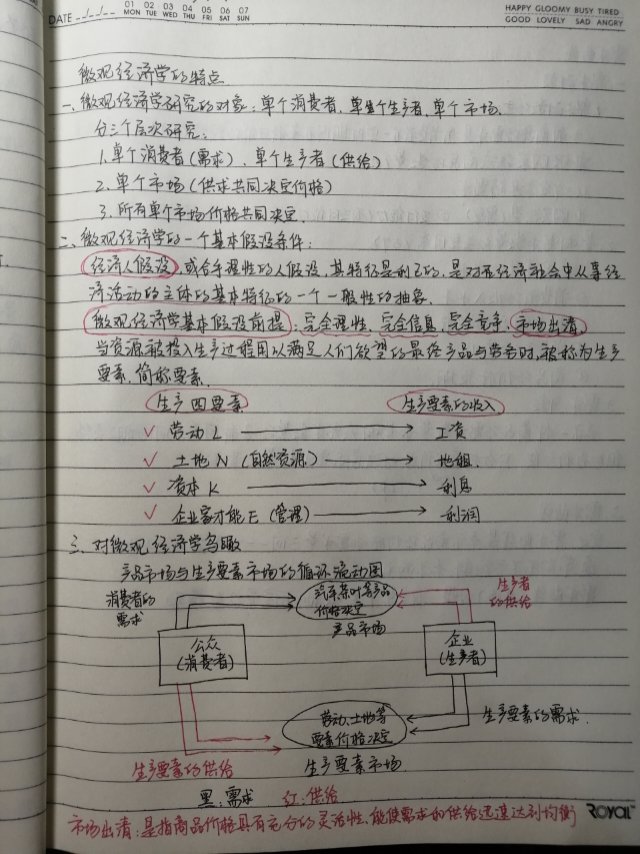 DATE / /
01 02 03 04 05 06 07
MON TUE WED THU FRI SAT SUN
HAPPY GLOOMY BUSY TIRED
GOOD LOVELY SAD ANGRY
微观经济学的特点
一、微观经济学研究的对象：单个消费者、单个生产者、单个市场.
分三个层次研究：
1.单个消费者(需求)、单个生产者(供给)
2.单个市场(供求共同决定价格)
3.所有单个市场价格共同决定.
二、微观经济学的一个基本假设条件：
经济人假设，或合乎理性的人假设，其特征是利己的，是对在经济社会中从事经
济活动的主体的基本特征的一个一般性的抽象.
微观经济学基本假设前提：完全理性、完全信息、完全竞争、市场出清
当资源被投入生产过程用以满足人们欲望的最终产品与劳务时，被称为生产
要素，简称要素.
生产四要素 生产要素的收入
✓ 劳动L → 工资
✓ 土地N(自然资源) → 地租.
✓ 资本K → 利息
✓ 企业家才能E(管理) → 利润
三、对微观经济学鸟瞰
产品市场与生产要素市场的循环流动图
消费者的
需求
汽车茶叶等产品
价格决定
产品市场
生产者
的供给
公众
(消费者)
企业
(生产者)
劳动、土地等
要素价格决定
生产要素市场
生产要素的需求.
生产要素的供给
黑：需求 红：供给
ROYAL
市场出清：是指商品价格具有充分的灵活性、能使需求和供给迅速达到均衡